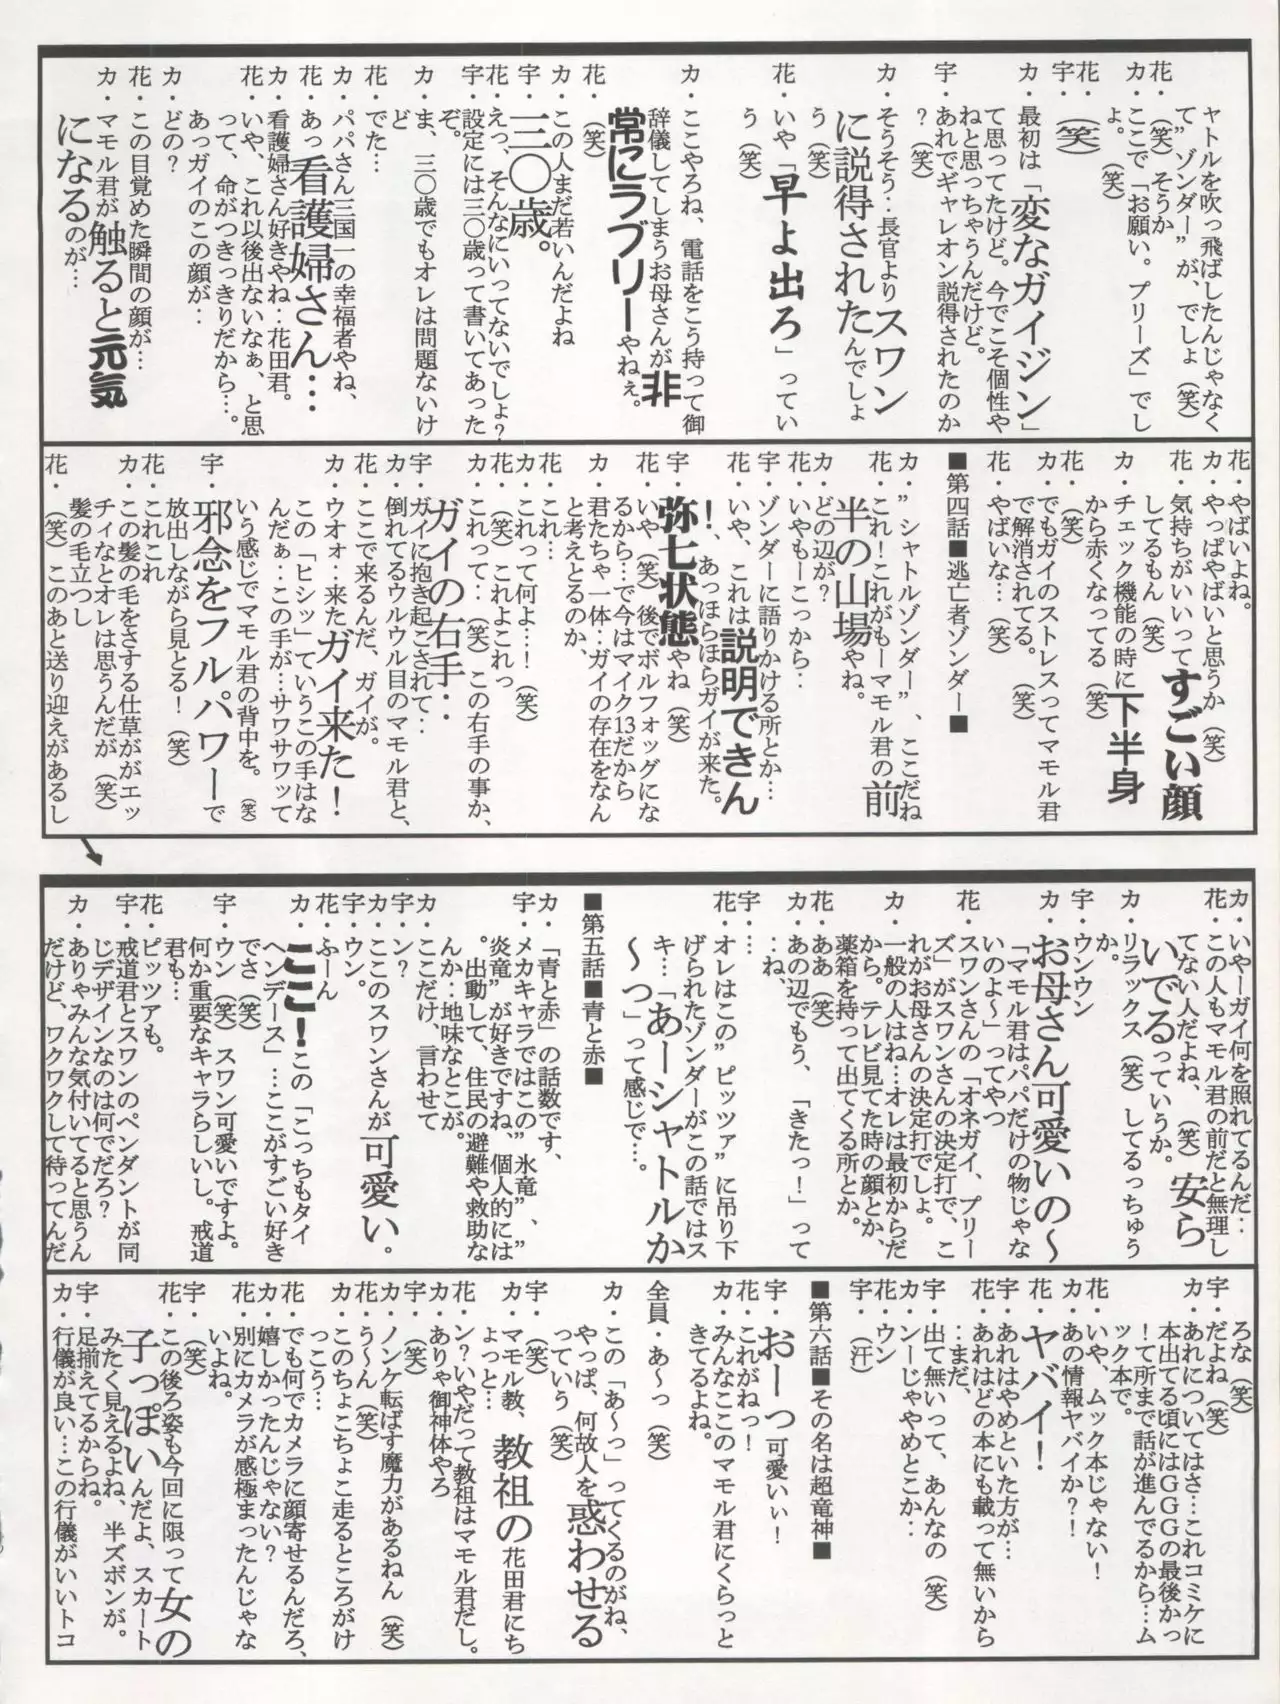 ャトルを吹っ飛ばしたんじゃなく
て”ゾンダー”が、でしょ（笑）
花・（笑）そうか
カ・ここで「お願い。プリーズ」でし
ょ。（笑）
花・
宇・（笑）
カ・最初は「変なガイジン」
て思ってたけど。今でこそ個性や
ねと思っちゃうんだけど。
宇・あれでギャレオン説得されたのか
？（笑）
カ・そうそう‥長官よりスワン
に説得されたんでしょ
う（笑）
花・いや「早よ出ろ」ってい
う（笑）
カ・ここやろね、電話をこう持って御
辞儀してしまうお母さんが非
常にラブリーやねぇ。
花・（笑）
カ・この人まだ若いんだよね
宇・三〇歳。
花・えっ、そんなにいってないでしょ？
宇・設定には三〇歳って書いてあった
ぞ。
カ・ま、三〇歳でもオレは問題ないけ
ど
花・でた…
カ・パパさん三国一の幸福者やね、
花・あっ看護婦さん…
カ・看護婦さん好きやね‥花田君。
花・いや、これ以後出ないなぁ、と思
って、命がつきっきりだから…。
あっガイのこの顔が‥
カ・どの？
花・この目覚めた瞬間の顔が…
カ・マモル君が触ると元気
になるのが…
花・やばいよね。
カ・やっぱやばいと思うか（笑）
花・気持ちがいいってすごい顔
してるもん（笑）
カ・チェック機能の時に下半身
から赤くなってる（笑）
花・（笑）
カ・でもガイのストレスってマモル君
で解消されてる。（笑）
花・やばいな…（笑）
■第四話■逃亡者ゾンダー■
カ・”シャトルゾンダー”、ここだね
花・これ！これがもーマモル君の前
半の山場やね。
カ・どの辺が？
花・いやもーこっから‥
宇・ゾンダーに語りかける所とか…
花・いや、これは説明できん
！、あっほらほらガイが来た。
宇・弥七状態やね（笑）
花・いや（笑）後でボルフォッグにな
るから…で今はマイク13だから
カ・君たちゃ一体‥ガイの存在をなん
と考えとるのか、
花・これ…
カ・これって何よ…！（笑）
花・（笑）これよこれっ
カ・これって‥（笑）この右手の事か、
ガイの右手‥
宇・ガイに抱き起こされて‥
カ・倒れてるウルウル目のマモル君と、
花・ここで来るんだ、ガイが。
カ・ウオォ‥来たガイ来た！
この「ヒシッ」ていうこの手はな
んだぁ‥この手が…サワサワッて
いう感じでマモル君の背中を。（笑）
宇・邪念をフルパワーで
放出しながら見とる！（笑）
花・これこれ
カ・この髪の毛をさする仕草ががエッ
チィなとオレは思うんだが（笑）
髪の毛立つし
花・（笑）このあと送り迎えがあるし
カ・いやーガイ何を照れてるんだ‥
花・この人もマモル君の前だと無理し
てない人だよね、（笑）安ら
いでるっていうか。
カ・リラックス（笑）してるっちゅう
か。
宇・ウンウン
カ・お母さん可愛いの～
「マモル君はパパだけの物じゃな
いのよ～」ってやつ
花・スワンさんの「オネガイ、プリー
ズ」がスワンさんの決定打で、こ
れがお母さんの決定打でしょ。
カ・一般の人はね…オレは最初からだ
から。テレビ見てた時の顔とか、
薬箱を持って出てくる所とか。
花・ああ（笑）
カ・あの辺でもう、「きたっ！」って
‥ね、
宇・…
花・オレはこの”ピッツァ”に吊り下
げられたゾンダーがこの話ではス
キ…「あーシャトルか
～つ」って感じで…。
■第五話■青と赤■
カ・「青と赤」の話数です、
宇・メカキャラではこの”氷竜”、”
炎竜”が好きですね、個人的には
。出動して、住民の避難や救助な
んか‥地味なとこが。
カ・ここだけ、言わせて
宇・ン？
カ・ここのスワンさんが可愛い。
宇・ウン。
花・ふーん
カ・ここ！この「こっちもタイ
ヘンデース」…ここがすごい好き
でさ（笑）
宇・ウン（笑）スワン可愛いですよ。
何か重要なキャラらしいし。戒道
君も…
花・ピッツアも。
宇・戒道君とスワンのペンダントが同
じデザインなのは何でだろ？
カ・ありゃみんな気付いてると思うん
だけど、ワクワクして待ってんだ
ろな（笑）
宇・だよね（笑）
カ・あれについてはさ…これコミケに
本出てる頃にはＧＧＧの最後かっ
！て所まで話が進んでるから…ム
ック本で。
花・いや、ムック本じゃない！
カ・あの情報ヤバイか？！
花・ヤバイ！
宇・あれはやめといた方が…
花・あれはどの本にも載って無いから
‥まだ
宇・出て無いって、あんなの（笑）
カ・ンーじゃやめとこか‥
花・ウン
宇・（汗）
■第六話■その名は超竜神■
宇・おーつ可愛いぃ！
花・これがねっ！
カ・みんなここのマモル君にくらっと
きてるよね。
全員・あ～っ（笑）
カ・この「あ～っ」ってくるのがね、
やっぱ、何故人を惑わせる
っていう（笑）
宇・（笑）
カ・マモル教、教祖の花田君にち
ょっと…
花・ン？いやだって教祖はマモル君だし。
カ・ありゃ御神体やろ
宇・（笑）
カ・ノンケ転ばす魔力があるねん（笑）
花・う～ん（笑）
カ・このちょこちょこ走るところがけ
っこう…
花・でも何でカメラに顔寄せるんだろ、
カ・嬉しかったんじゃない？
花・別にカメラが感極まったんじゃな
いよね。
宇・（笑）
花・この後ろ姿も今回に限って女の
子っぽいんだよ、スカート
みたく見えるよね、半ズボンが。
宇・足揃えてるからね。
カ・行儀が良い…この行儀がいいトコ